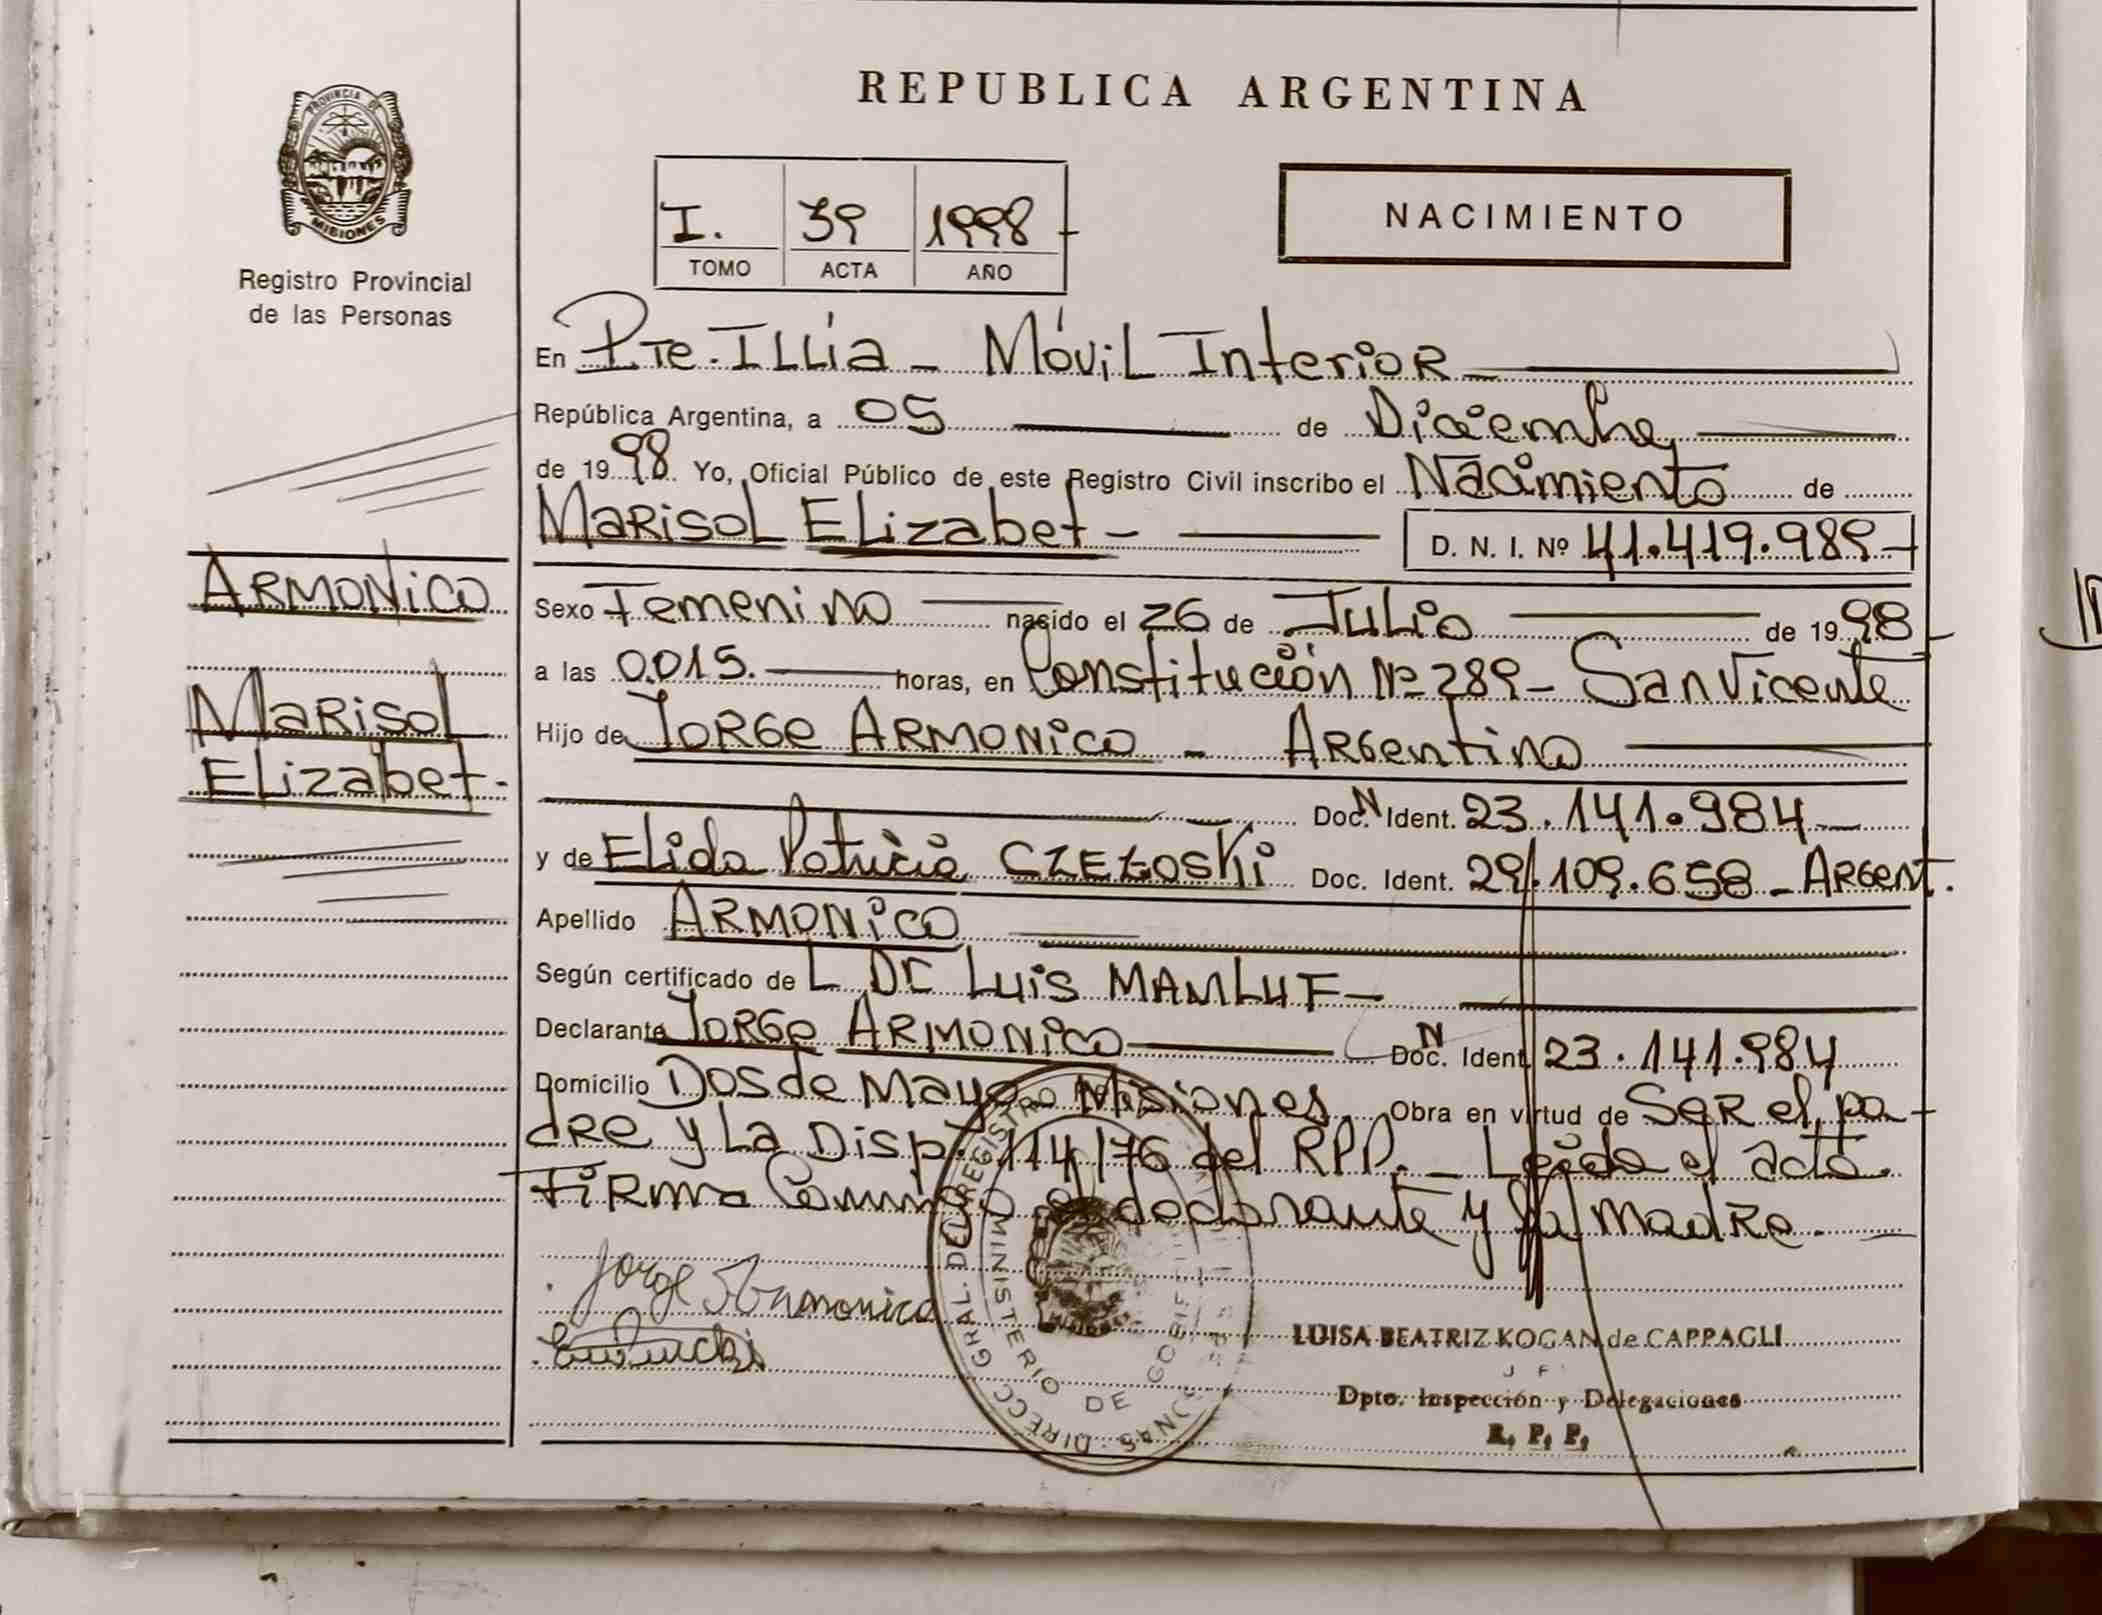 REPUBLICA ARGENTINA
PROVINCIA DE
MISIONES
Registro Provincial
de las Personas
I. 39 1998
TOMO ACTA AÑO
NACIMIENTO
En Pte. ILLia - Móvil Interior
República Argentina, a 05 de Diciembre
de 1998 Yo, Oficial Público de este Registro Civil inscribo el Nacimiento de
Marisol Elizabet - D. N. I. Nº 41.419.989
ARMONICO
Marisol
Elizabet -
Sexo Femenino nacido el 26 de Julio de 1998
a las 0.015. horas, en Constitución Nº 289 - San Vicente
Hijo de Jorge Armonico - Argentino
Doc. N Ident. 23.141.984
y de Elida Patricia Doc. Ident. 29.109.658 - Argent.
Apellido ARMONICO
Según certificado de L DC Luis MAMLUF -
Declarante Jorge ARMONICO Doc. N Ident. 23.141.984
Domicilio Dos de Mayo Misiones Obra en virtud de Ser el pa-
dre y La Disp. 114/76 del RPP. - Leida el acta.
Firma Conmigo el declarante y la madre.
Jorge Armonico
DIRECC. GRAL. DEL REGISTRO
MINISTERIO DE
LUISA BEATRIZ KOGAN de CAPPAGLI
Dpto. Inspección y Delegaciones
R. P. P.